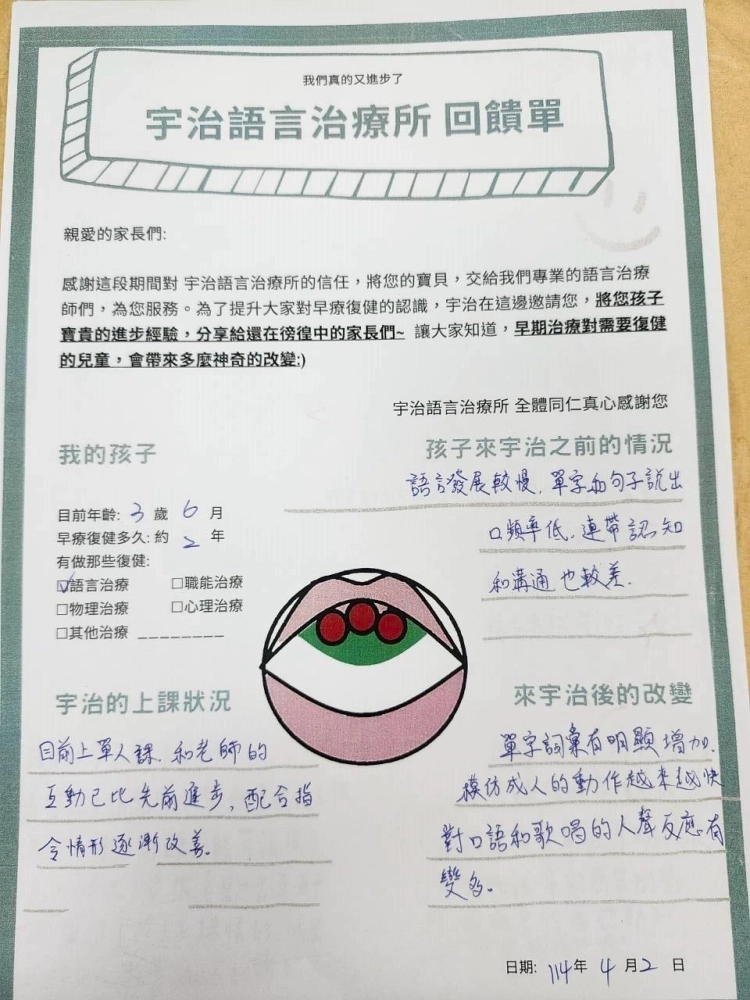 我們真的又進步了
宇治語言治療所 回饋單
親愛的家長們:
感謝這段期間對 宇治語言治療所的信任，將您的寶貝，交給我們專業的語言治療
師們，為您服務。為了提升大家對早療復健的認識，宇治在這邊邀請您，將您孩子
寶貴的進步經驗，分享給還在徬徨中的家長們~ 讓大家知道，早期治療對需要復健
的兒童，會帶來多麼神奇的改變:)
宇治語言治療所 全體同仁真心感謝您
我的孩子
目前年齡: 3 歲 6 月
早療復健多久: 約 2 年
有做那些復健:
☑語言治療 □職能治療
□物理治療 □心理治療
□其他治療 ________
孩子來宇治之前的情況
語言發展較慢，單字和句子說出
口頻率低，連帶認知
和溝通也較差.
宇治的上課狀況
目前上單人課，和老師的
互動已比先前進步，配合指
令情形逐漸改善。
來宇治後的改變
單字詞彙有明顯增加，
模仿成人的動作越來越快
對口語和歌唱的人聲反應有
變多。
日期: 114年 4 月2 日